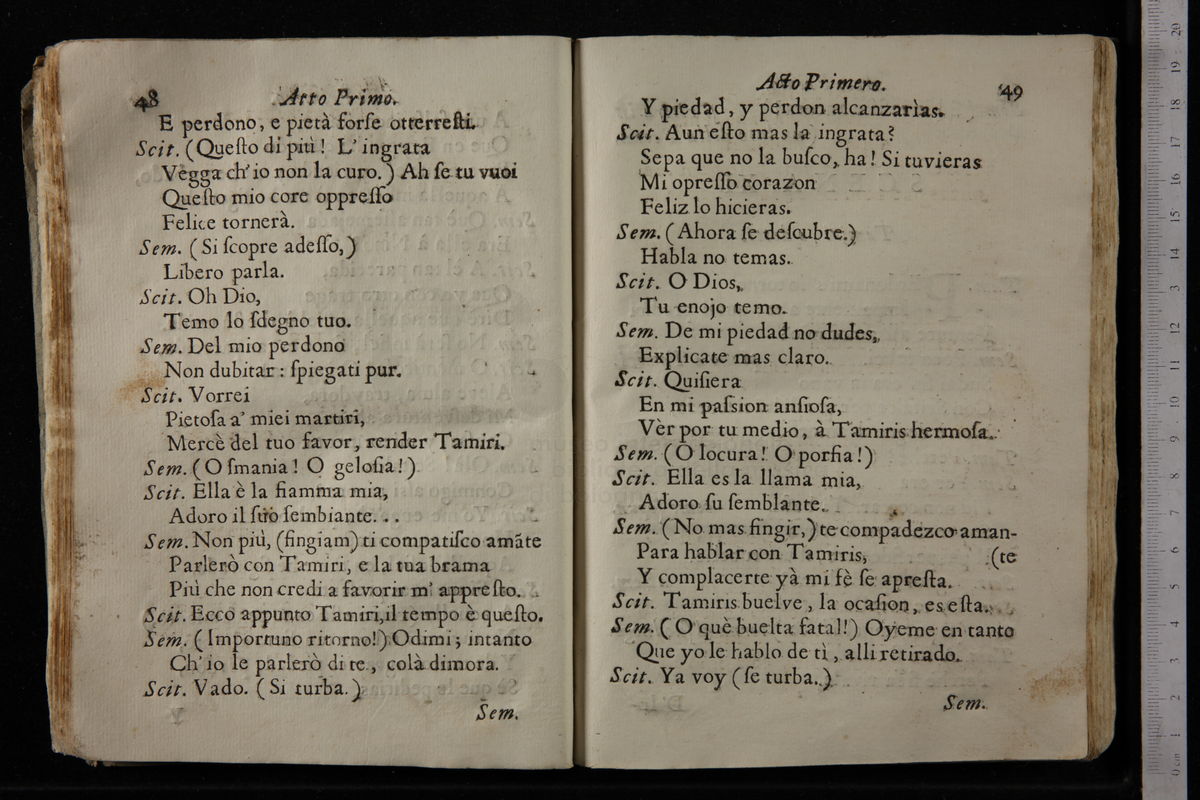 48 Atto Primo.
E perdono, e pietà forſe otterreſti.
Scit. (Queſto di più! L' ingrata
Vegga ch' io non la curo.) Ah ſe tu vuoi
Queſto mio core oppreſſo
Felice tornerà.
Sem. (Si ſcopre adeſſo,)
Libero parla.
Scit. Oh Dio,
Temo lo ſdegno tuo.
Sem. Del mio perdono
Non dubitar: ſpiegati pur.
Scit. Vorrei
Pietoſa a' miei martiri,
Mercè del tuo favor, render Tamiri.
Sem. (O ſmania! O geloſia!)
Scit. Ella è la fiamma mia,
Adoro il ſuo ſembiante...
Sem. Non più, (fingiam) ti compatiſco amãte
Parlerò con Tamiri, e la tua brama
Più che non credi a favorir m' appreſto.
Scit. Ecco appunto Tamiri, il tempo è queſto.
Sem. (Importuno ritorno!) Odimi; intanto
Ch' io le parlerò di te, colà dimora.
Scit. Vado. (Si turba.)
Sem.
Acto Primero. 49
Y piedad, y perdon alcanzarìas.
Scit. Aun eſto mas la ingrata?
Sepa que no la buſco, ha! Si tuvieras
Mi opreſſo corazon
Feliz lo hicieras.
Sem. (Ahora ſe deſcubre.)
Habla no temas.
Scit. O Dios,
Tu enojo temo.
Sem. De mi piedad no dudes,
Explicate mas claro.
Scit. Quiſiera
En mi paſsion anſioſa,
Vèr por tu medio, à Tamiris hermoſa.
Sem. (O locura! O porfia!)
Scit. Ella es la llama mia,
Adoro ſu ſemblante.
Sem. (No mas fingir,) te compadezco aman-
Para hablar con Tamiris, (te
Y complacerte yà mi fè ſe apreſta.
Scit. Tamiris buelve, la ocaſion, es eſta.
Sem. (O què buelta fatal!) Oyeme en tanto
Que yo le hablo de tì, alli retirado.
Scit. Ya voy (ſe turba.)
Sem.